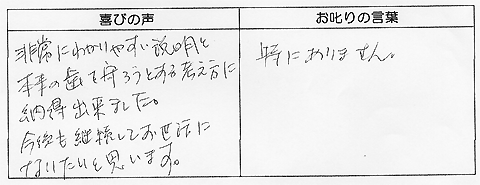 喜びの声
お叱りの言葉
非常にわかりやすい説明と
本来の歯を守ろうとする考え方に
納得出来ました。
今後も継続してお世話に
なりたいと思います。
特にありません。